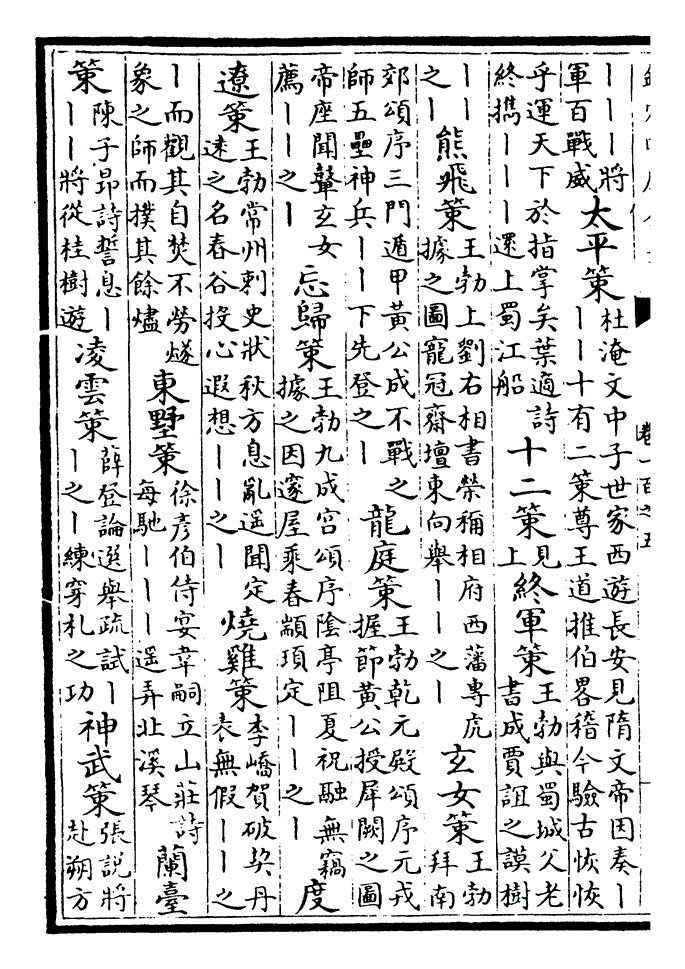 卷一百之五
丨丨丨將
軍百戰威
太平策
杜淹文中子世家西遊長安見隋文帝因奏丨
丨丨十有二策尊王道推伯畧稽今驗古恢恢
乎運天下於指掌矣葉適詩
終攜丨丨丨還上蜀江船
十二策
見
上
終軍策
王勃與蜀城父老
書成賈誼之謨樹
丨丨
之丨
熊飛策
王勃上劉右相書榮稱相府西藩專虎
據之圖寵冠齋壇東向舉丨丨之丨
玄女策
王勃
拜南
郊頌序三門遁甲黃公成不戰之
師五壘神兵丨丨下先登之丨
龍庭策
王勃乾元殿頌序元戎
握節黃公授犀闕之圖
帝座聞鼙玄女
薦丨丨之丨
忘歸策
王勃九成宮頌序陰亭阻夏祝融無竊
據之因邃屋乘春顓頊定丨丨之丨
度
遼策
王勃常州刺史狀秋方息亂遥聞定
逺之名春谷投心遐想丨丨之丨
燒雞策
李嶠賀破契丹
表無假丨丨之
丨而觀其自焚不勞燧
象之師而撲其餘燼
東墅策
徐彦伯侍宴韋嗣立山莊詩
每馳丨丨丨遥弄北溪琴
蘭臺
策
陳子昂詩誓息丨
丨丨將從桂樹遊
凌雲策
薛登論選舉疏試丨
丨之丨練穿札之功
神武策
張説將
赴朔方